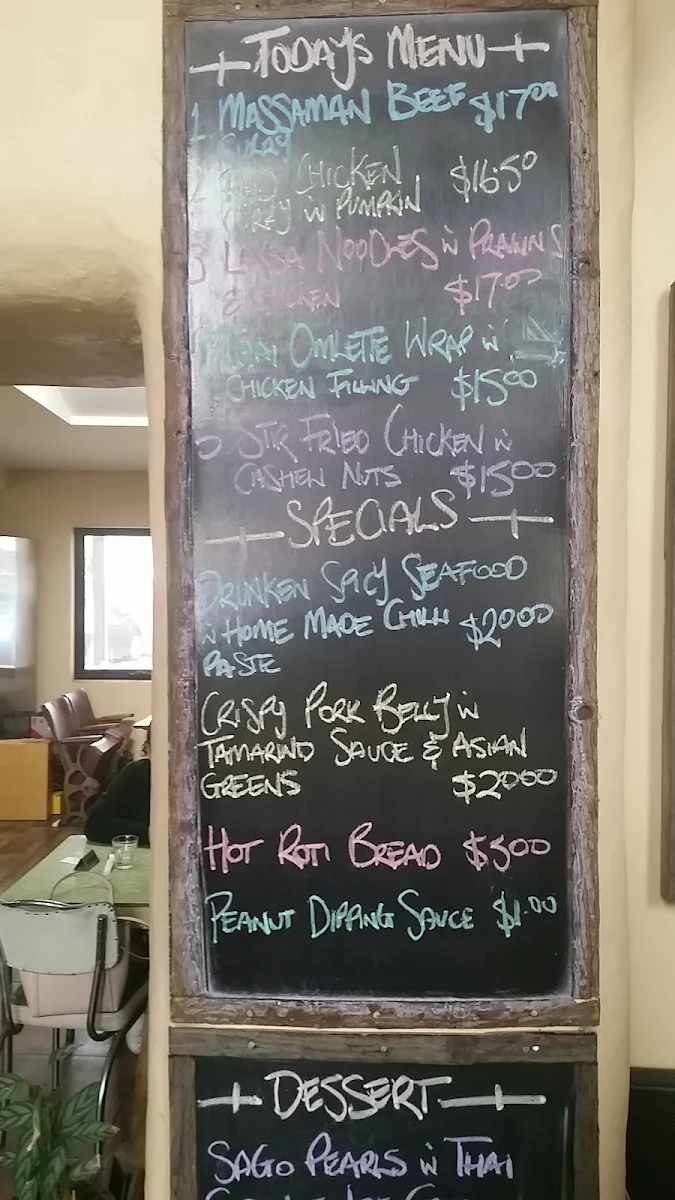 TODAYS MENU
1 MASSAMAN BEEF $17.00
CURRY
CHICKEN $16.50
CURRY W PUMPKIN
3 LAKSA NOODLES W PRAWNS
& CHICKEN $17.00
4 THAI OMLETTE WRAP W
CHICKEN FILLING $15.00
5 STIR FRIED CHICKEN W
CASHEW NUTS $15.00
SPECIALS
DRUNKEN SPICY SEAFOOD
W HOME MADE CHILLI $20.00
PASTE
CRISPY PORK BELLY W
TAMARIND SAUCE & ASIAN
GREENS $20.00
HOT ROTI BREAD $5.00
PEANUT DIPPING SAUCE $1.00
DESSERT
SAGO PEARLS W THAI